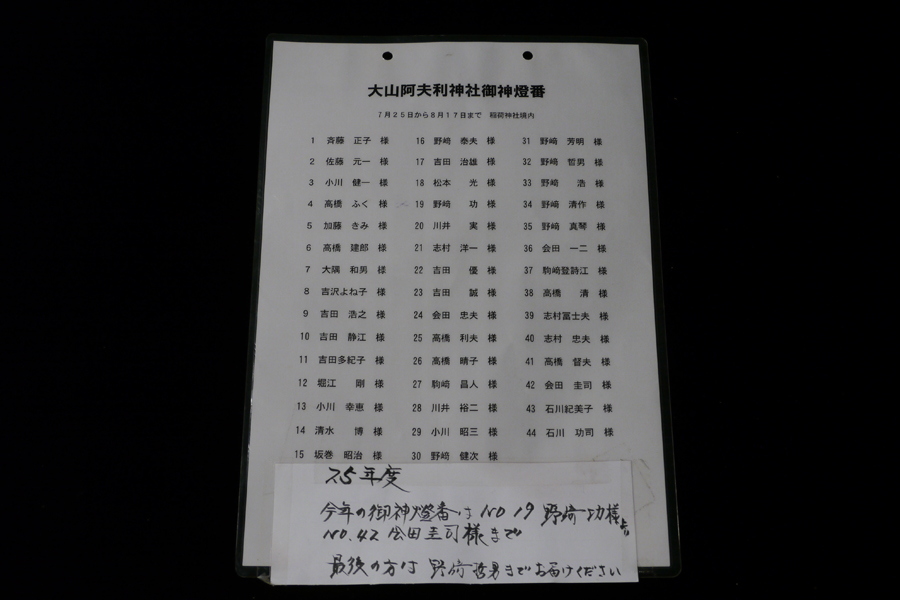 大山阿夫利神社御神燈番
7月25日から8月17日まで 稲荷神社境内
1 斉藤 正子 様 16 野﨑 泰夫 様 31 野﨑 芳明 様
2 佐藤 元一 様 17 吉田 治雄 様 32 野﨑 哲男 様
3 小川 健一 様 18 松本 光 様 33 野﨑 浩 様
4 高橋 ふく 様 19 野﨑 功 様 34 野﨑 清作 様
5 加藤 きみ 様 20 川井 実 様 35 野﨑 真琴 様
6 高橋 建郎 様 21 志村 洋一 様 36 会田 一二 様
7 大隅 和男 様 22 吉田 優 様 37 駒﨑登詩江 様
8 吉沢よね子 様 23 吉田 誠 様 38 高橋 清 様
9 吉田 浩之 様 24 会田 忠夫 様 39 志村冨士夫 様
10 吉田 静江 様 25 高橋 利夫 様 40 志村 忠夫 様
11 吉田多紀子 様 26 高橋 晴子 様 41 高橋 督夫 様
12 堀江 剛 様 27 駒﨑 昌人 様 42 会田 圭司 様
13 小川 幸恵 様 28 川井 裕二 様 43 石川紀美子 様
14 清水 博 様 29 小川 昭三 様 44 石川 功司 様
15 坂巻 昭治 様 30 野﨑 健次 様
25年度
今年の御神燈番は NO 19 野﨑 功様より
NO.42 会田圭司様まで
最後の方は 野﨑哲男までお届けください